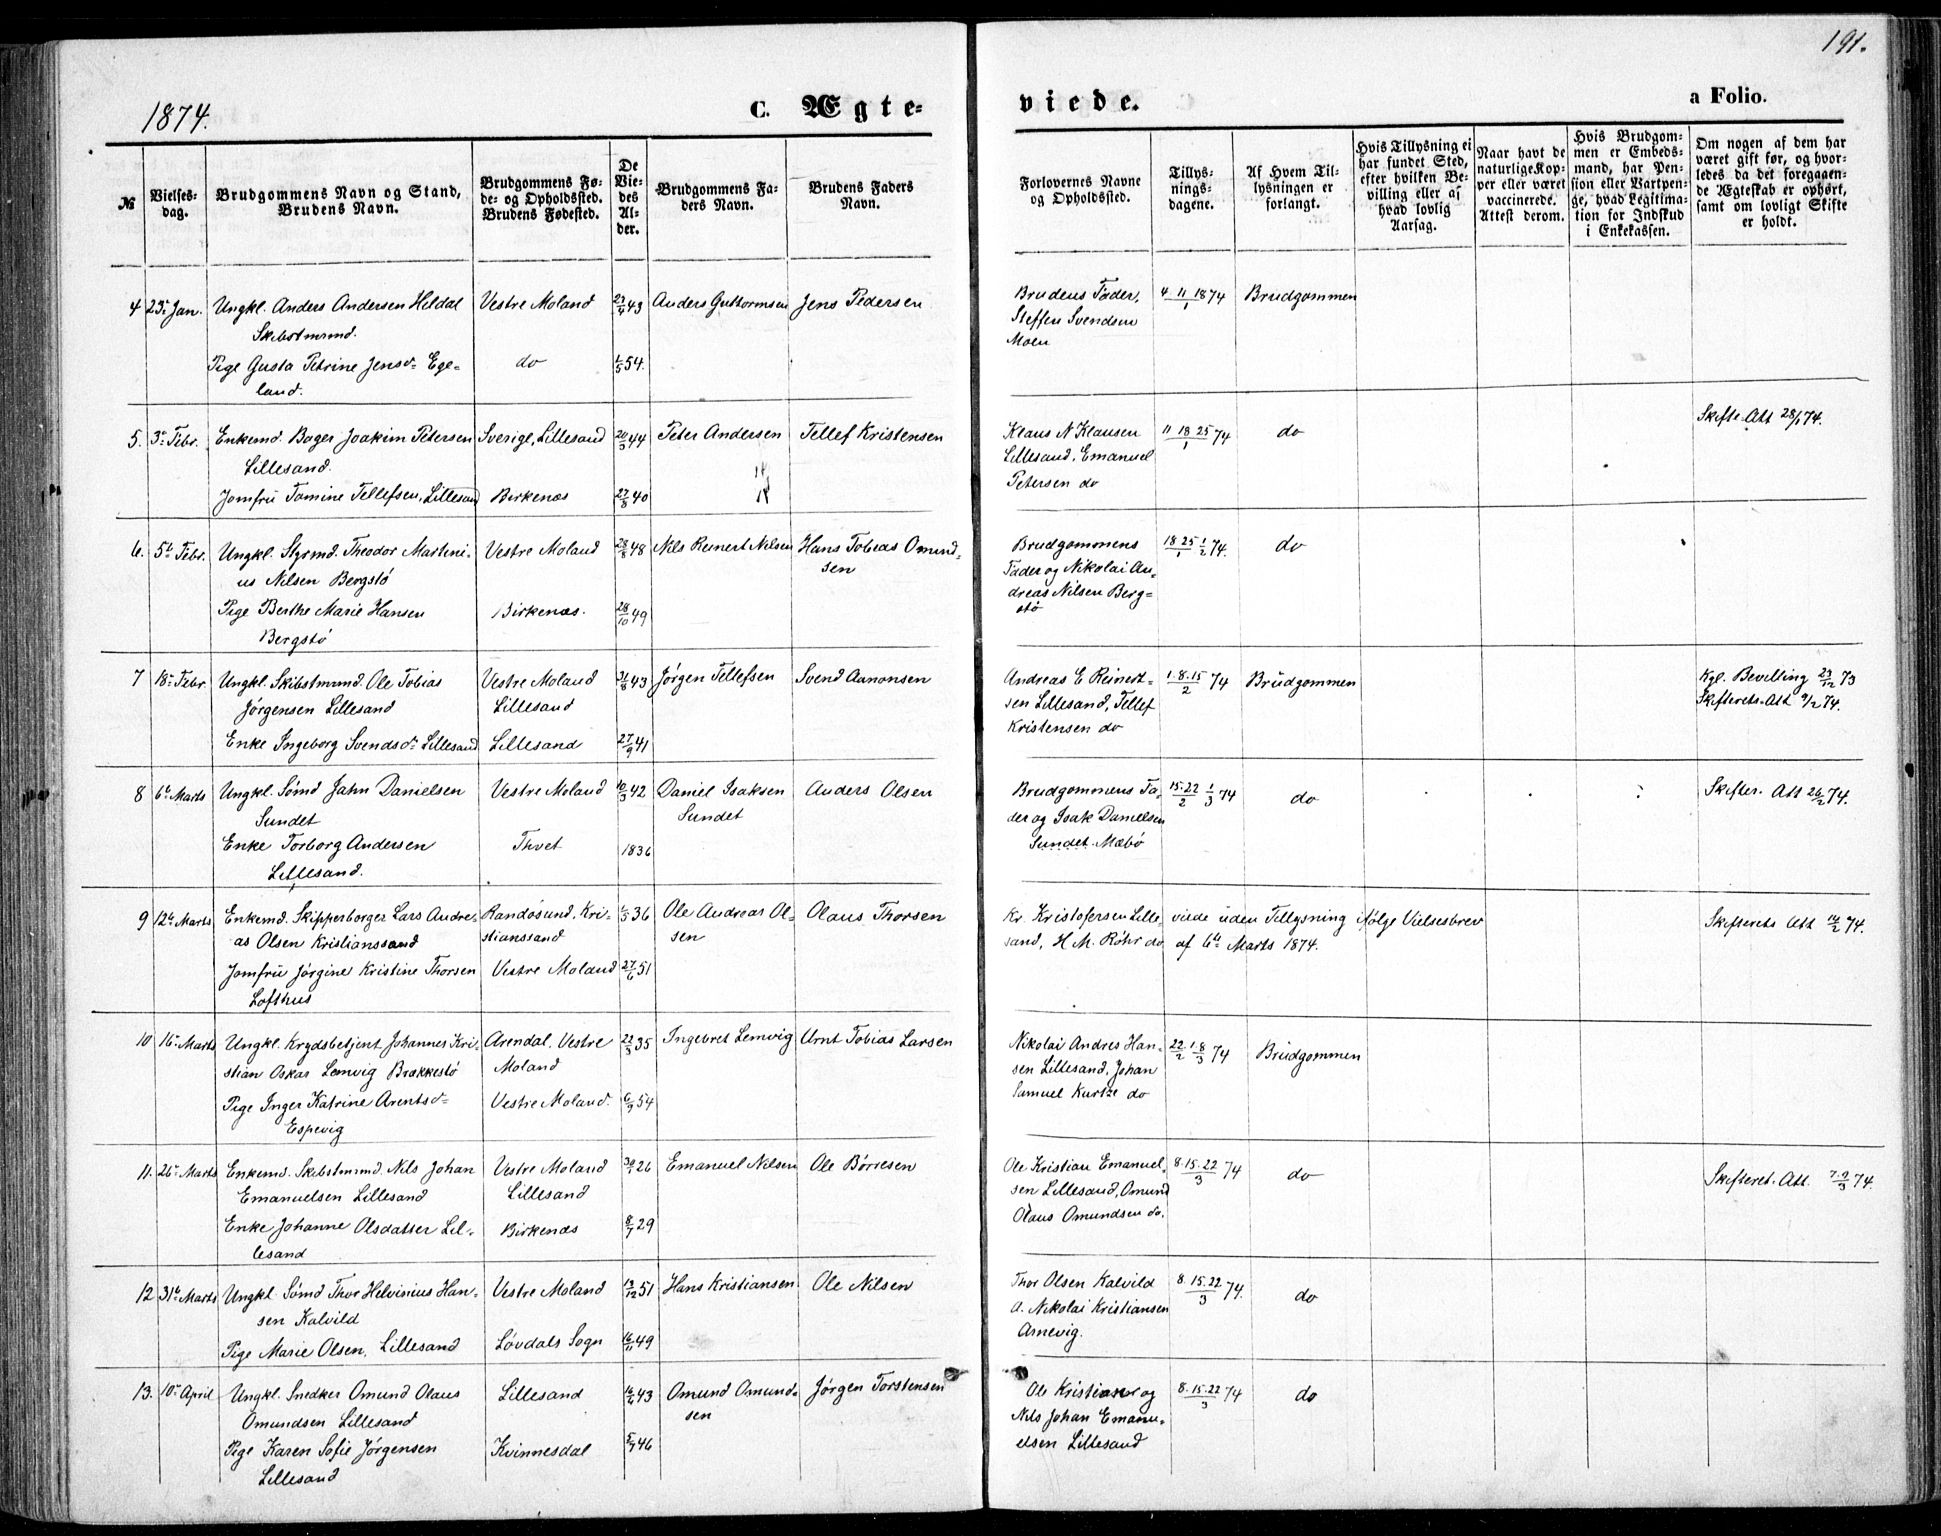 191.
1874.
C. Ægte-
viede.
a Folio.
№
Vielses-
dag.
Brudgommens Navn og Stand,
Brudens Navn.
Brudgommens Fø-
de- og Opholdssted.
Brudens Fødested.
De
Vie-
des
Al-
der.
Brudgommens Fa-
ders Navn.
Brudens Faders
Navn.
Forlovernes Navne
og Opholdssted.
Tillys-
nings-
dagene.
Af Hvem Til-
lysningen er
forlangt.
Hvis Tillysning ei
har fundet Sted,
efter hvilken Be-
villing eller af
hvad lovlig
Aarsag.
Naar havt de
naturlige Kop-
per eller været
vaccinerede.
Attest derom.
Hvis Brudgom-
men er Embeds-
mand, har Pen-
sion eller Vartpen-
ge, hvad Legitima-
tion for Indskud
i Enkekassen.
Om nogen af dem har
været gift før, og hvor-
ledes da det foregaaen-
de Ægteskab er ophørt,
samt om lovligt Skifte
er holdt.
4 23de Jan. Ungkl. Anders Andersen Heldal Vestre Moland 23/4 43 Anders Guttormsen Jens Pedersen
Skibstmrmd.
Pige Gusta Petrine Jensd. Ege- do 1/5 54.
land.
Brudens Fader, 4 11/1 1874 Brudgommen
Steffen Svendsen
Moen
5. 3de Febr. Enkemd. Bager Joakim Petersen Sverige, Lillesand 20/3 44 Peter Andersen Tellef Kristensen
Lillesand.
Jomfru Tomine Tellefsen, Lillesand Birkenæs 27/8 40
Klaus N Klausen 11 18 25/1 74 do Skifte-Att 28/1 74.
Lillesand, Emanuel
Petersen do
6. 5te Febr. Ungkl. Styrmd. Theodor Martini- Vestre Moland 28/8 48 Nils Reinert Nilsen Hans Tobias Omund-
us Nilsen Bergstø sen
Pige Berthe Marie Hansen Birkenæs. 28/10 49
Bergstø
Brudgommens 18 25/1 1/2 74. do
Fader og Nikolai An-
dreas Nilsen Berg-
stø
7 18de Febr. Ungkl. Skibstmrmd. Ole Tobias Vestre Moland 21/8 43 Jørgen Tellefsen Svend Aanonsen
Jørgensen Lillesand Lillesand
Enke Ingeborg Svendsdr Lillesand Lillesand 27/9 41
Andreas E Reinert- 1.8.15/2 74 Brudgommen Kgl. Bevilling 23/12 73
sen Lillesand, Tellef Skifterets-Att 9/2 74.
Kristensen do
8 6te Marts Ungkl. Sømd Jahn Danielsen Vestre Moland 10/3 42 Daniel Isaksen Anders Olsen
Sundet Sundet
Enke Torborg Andersen Thvet 1836
Lillesand.
Brudgommens Fa- 15.22/2 1/3 74 do Skifter. Att 26/2 74.
der og Isak Danielsen
Sundet. Mæbø
9 12te Marts Enkemd. Skipperborger Lars Andre- Randøsund, Kri- 1/5 36 Ole Andreas Ol- Olaus Thorsen
as Olsen Kristianssand stianssand sen
Jomfru Jørgine Kristine Thorsen Vestre Moland 27/6 51
Lofthus
Kr. Kristofersen Lille- viede uden Tillysning ifølge Vielsesbrev Skifterets Att 14/2 74.
sand, H M. Røhr do af 6te Marts 1874.
10 16de Marts Ungkl. Krydsbetjent Johannes Kri- Arendal, Vestre 22/3 35 Ingebret Lemvig Arnt Tobias Larsen
stian Oskar Lemvig Brækkestø Moland
Pige Inger Katrine Arentsd- Vestre Moland. 6/9 54
Espevig
Nikolai Andres Han- 22/2 1.8/3 74 Brudgommen
sen Lillesand, Johan
Samuel Kurtze do
11. 26de Marts Enkemd. Skibstmrmd. Nils Johan Vestre Moland 30/1 26 Emanuel Nilsen Ole Børresen
Emanuelsen Lillesand Lillesand
Enke Johanne Olsdatter Lil- Birkenæs 8/7 29
lesand
Ole Kristian Emanuel- 8.15.22/3 74 do Skifteret. Att. 7.9/3 74.
sen Lillesand, Omund
Olaus Omundsen do.
12 31te Marts Ungkl Sømd Thor Helvinius Han- Vestre Moland 13/12 51 Hans Kristiansen Ole Nilsen
sen Kalvild
Pige Marie Olsen, Lillesand Løvdals Sogn 16/11 49
Thor Olsen Kalvild 8.15.22/3 74. do
d. Nikolai Kristiansen
Arnevig.
13. 10de April Ungkl. Snedker Omund Olaus Lillesand 16/6 43 Omund Omund- Jørgen Torstensen
Omundsen Lillesand sen
Pige Karen Sofie Jørgensen Kvinnesdal 5/7 46
Lillesand
Ole Kristiansen og 8.15.22/3 74 do
Nils Johan Emanu-
elsen Lillesand